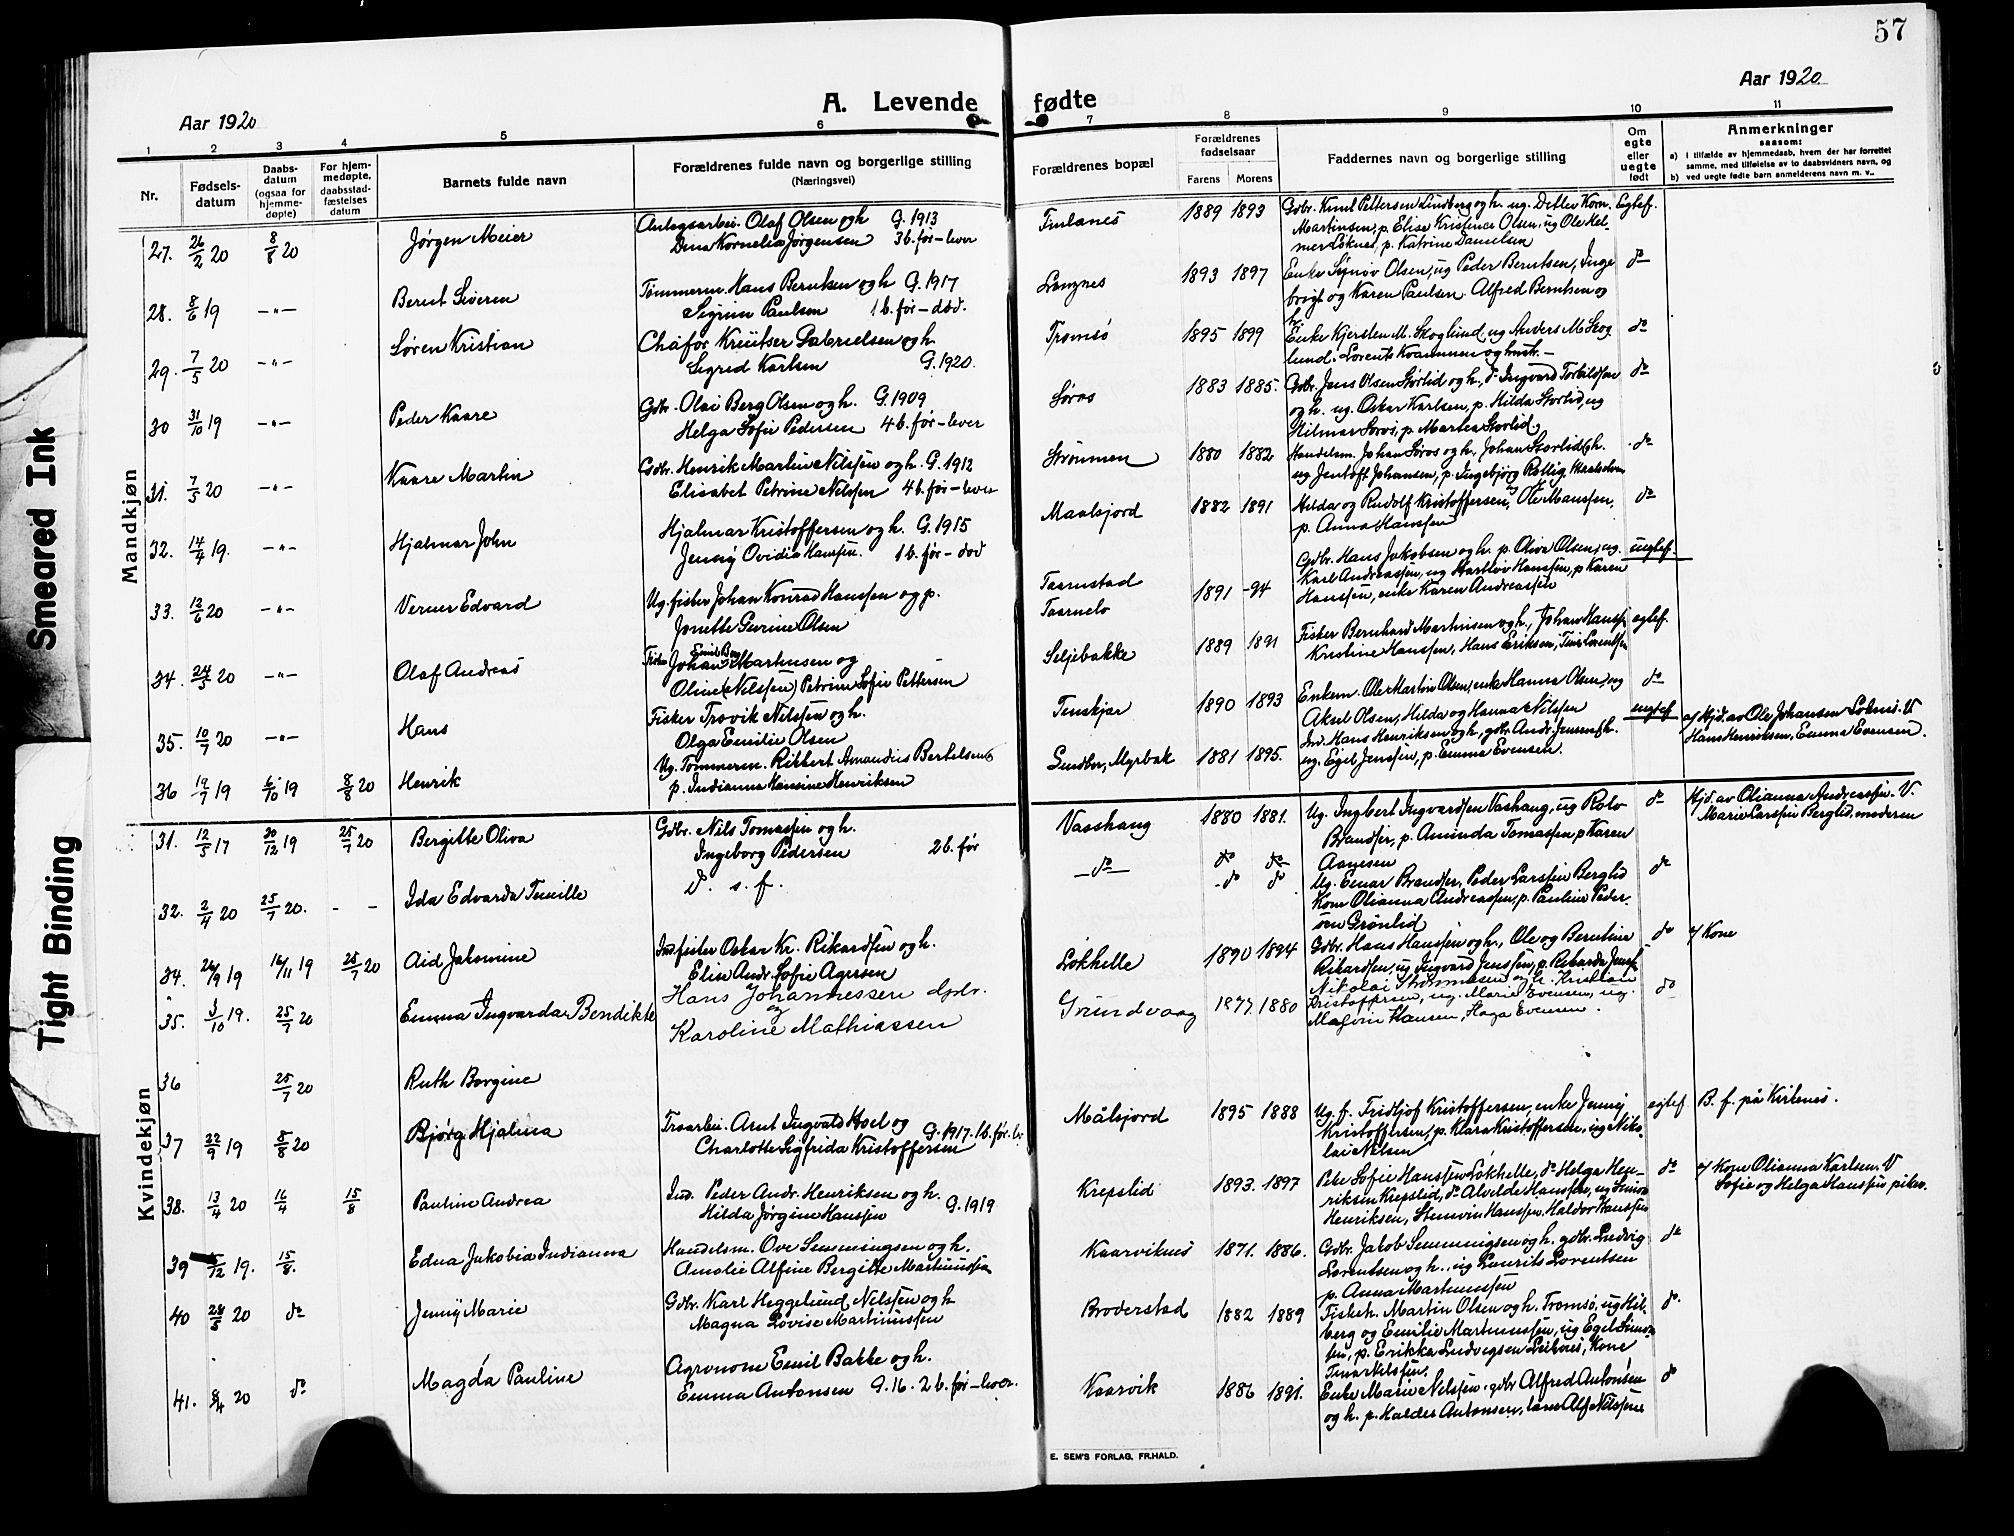 57
Smeared Ink
Tight Binding
Aar 1920
A. Levende fødte
Aar 1920.
1 2 3 4 5 6 7 8 9 10 11
Nr.
Fødsels-
datum
Daabs-
datum
(ogsaa for
hjemme-
døpte)
For hjem-
medøpte,
daabsstad-
fæstelses
datum
Barnets fulde navn
Forældrenes fulde navn og borgerlige stilling
(Næringsvei)
Forældrenes bopæl
Forældrenes
fødselsaar
Farens Morens
Faddernes navn og borgerlige stilling
Om
egte
eller
uegte
født
Anmerkninger
saasom:
a) I tilfælde av hjemmedaab, hvem der har forrettet
samme, med tilføielse av to daabsvidners navn, og
b) ved uegte fødte barn anmelderens navn m. v..
Mandkjøn
27. 26/2 20 8/8 20 Jørgen Meier
Olaf Olsen og h G. 1913
Dina Kornelia Jørgensen 3 b. før – lever
1889 1893
Gdbr. Knut Pettersen Lindberg og h. ug. Detlev Korn.
Martinsen, p. Elise Kristence Olsen, ug Ole Hel-
mer Løknes, p. Katrine Danielsen
Egtef.
28. 8/6 19 –"– Berut Sivren
Tømmerm. Hans Berntsen og h G. 1917
Sigrun Paulsen 1 b. før – død.
Langnes 1893 1897
Enke Synøv Olsen, ug Peder Berntsen, Inge
brigt og Karen Paulsen. Alfred Berntsen og
h.
do
29. 7/5 20 –"– Søren Kristian
Chafør Kreütser Gabrielsen og h.
Sigrid Karlsen G. 1920.
Tromsø 1895 1899
Enke Kjersten M. Skoglund, ug Anders M Skog
lund. Lorents Kvammen og hustr. –
do
30 31/10 19 –"– Peder Kaare
Gdbr. Olai Berg Olsen og h. G. 1909
Helga Sofie Pedersen 4 b. før – lever
Sørøs 1883 1885.
Gdbr. Jens Olsen Storlid og h., do Ingvard Torbildsen
og h. ug. Oskar Karlsen, p. Hilda Storlid, ug
Hilmar Sørøs, p. Martea Storlid
do
31. 7/5 20 –"– Kaare Martin
Gdbr. Henrik Martin Nilssen og h. G. 1912
Elisabet Petrine Nilssen 4 b. før – lever
Strømmen 1880 1882
Handelsm. Johan Sørøs og h. Johan Storlid og h.
ug Jentoft Johansen, p. Ingebjørg
do
32. 14/4 19. –"– Hjalmar John
Hjalmar Kristoffersen og h. G. 1915
Jenny Ovidia Hanssen. 1 b. før – død
Maalsjord 1882 1891
Hilda og Rudolf Kristoffersen, Ole Hanssen,
p. Anna Hanssen
do
33. 12/6 20 –"– Verner Edvard
Ug. fisker Johan Konrad Hanssen og p.
Jonette Gurine Olsen
Taarnstad
Taarnelv
1891 –94
Gdbr. Hans Jakobsen og h. p. Oliva Olsen, ug.
Karl Andreassen, ug Hartløv Hanssen, p Karen
Hanssen, enke Karen Andreassen
uegtef.
34. 24/5 20 –"– Olaf Andreas
Fisker Johan Emil Berg Martinsen og
Oline (Nilssen) Petrine Sofie Pettersen
Seljebakke 1889 1891
Fisker Bernhard Martinsen og h., Johan Hanss.
Kristine Hanssen, Hans Eriksen, Tina Lorentssen
egtef.
35. 10/7 20 –"– Hans
Fisker Trovik Nilssen og h.
Olga Emilie Olsen
Tenskjær 1890 1893
Enkem. Ole Martin Olsen, enke Hanna Olsen, ug
Aksel Olsen, Hilda og Hanna Nilssen
do
36 12/7 19 6/10 19 8/8 20 Henrik
Ug. Tømmerm. Rikhert Amandus Bertelsen &
p. Indianna Hansine Henriksen
Myrbak 1881 1895.
Ind. Hans Henriksen og h., gdbr. Andr. Jenssen og h.
ug. Egel Jenssen, p. Emma Evensen.
uegtef
a) Hjd. av Ole Johansen Løknes. V
Hans Henriksen, Emma Evensen.
Kvindekjøn
31. 12/5 17 30/12 19 25/7 20 Bergitte Oliva
Gdbr. Nils Tomassen og h.
Ingeborg Pedersen 2 b. før
Vasshaug 1880 1881.
Ug. Ingbert Ingvardsen Vashaug, ug Rolv
Brandser, p. Aminda Tomassen, p Karen
Aanesen
do
Hjd. av Olianna Andreassen. V.
Marie Larssen Berglid, moderen
32. 2/4 20 25/7 20. – – Ida Edvarda Tomille
D. s. f.
–do– do do
Ug. Einar Brandser, Peder Larssen Berglid
Kone Olianna Andreassen, p. Pauline Peder-
sen Grønlid
do
34. 26/9 19 16/11 19 25/7 20 Aid Jakomine
Ind. fisker Oskar Kr. Rikardsen og h.
Elise Andr. Sofie Agersen
Løkhelle 1890 1894
Gdbr. Hans Hanssen og h., Ole og Berntine
Rikardsen, ug Ingvard Jenssen, p. Rikarda Jenss.
do
a) Kone
35. 3/10 19. 25/7 20 Emma Ingvarda Bendikte
Hans Johannessen Gdbr.
og
Karoline Mathiassen
Grundvaag 1877 1880
Nikolai Thommesen og h. Kristian
Kristoffersen, ug. Marie Evensen, ug.
Magvin Hansen, Haga Evensen.
do
36 25/7 20 Ruth Borgine
37 22/9 19 8/8 20 Bjørg Hjalma
Arnt Ingvald Hoel og
Charlotte Sigfrida Kristoffersen G. 1917. 1 b. før. lev
Målsjord 1895 1888
Ug. f. Fridtjof Kristoffersen, enke Jenny
Kristoffersen, p. Klara Kristoffersen, ug Niko-
lai Nelsen
egtef
B. f. på Kirkenes.
38. 13/4 20 16/4 15/8 Pauline Andrea
Ind. Peder Andr. Henriksen og h.
Hilda Jørgine Hanssen G. 1919
Krepslid 1893. 1897
Pike Sofie Hanssen Løkhelle, do Helga Hen-
riksen Krepslid, do Alvilde Hanssen, ug Simon
Henriksen, Steinvin Hanssen, Haldor Hanssen
do
a) Kone Olianna Karlsen. V
Sofie og Helga Hanssen piker.
39 5/12 19. 15/8. Edna Jakobia Indianna
Handelsm. Ove Semmingsen og h.
Amalie Alfine Bergitte Martinussen
Kaarviknes 1871. 1886.
Gdbr. Jakob Semmingsen og h. gdbr. Ludvig
Lorentsen og h., ug Laurits Lorentsen
p. Anna Martinussen
do
40 28/5 20 do Jenny Marie
Gdbr. Karl Heggelund Nilssen og h
Magna Lovise Martinussen
Broderstad 1882 1889
Fiskeh. Martin Olsen og h. Tromsø, ug Hil-
berg og Emilie Martinussen, ug Egel Simon-
sen, p. Erikka Ludvigsen Leiknes, Kone
Tina Nilssen.
do
41. 8/4 20 do Magda Pauline
Agronom Emil Bakke og h.
Emma Antonsen G. 16. 2 b. før – lever.
Kaarvik 1886 1891.
Enke Marie Nilssen, gdbr Alfred Antonsen
og h. p. Haldis Antonsen, Alf Nilssen
do
E. SEM'S FORLAG, FR.HALD.